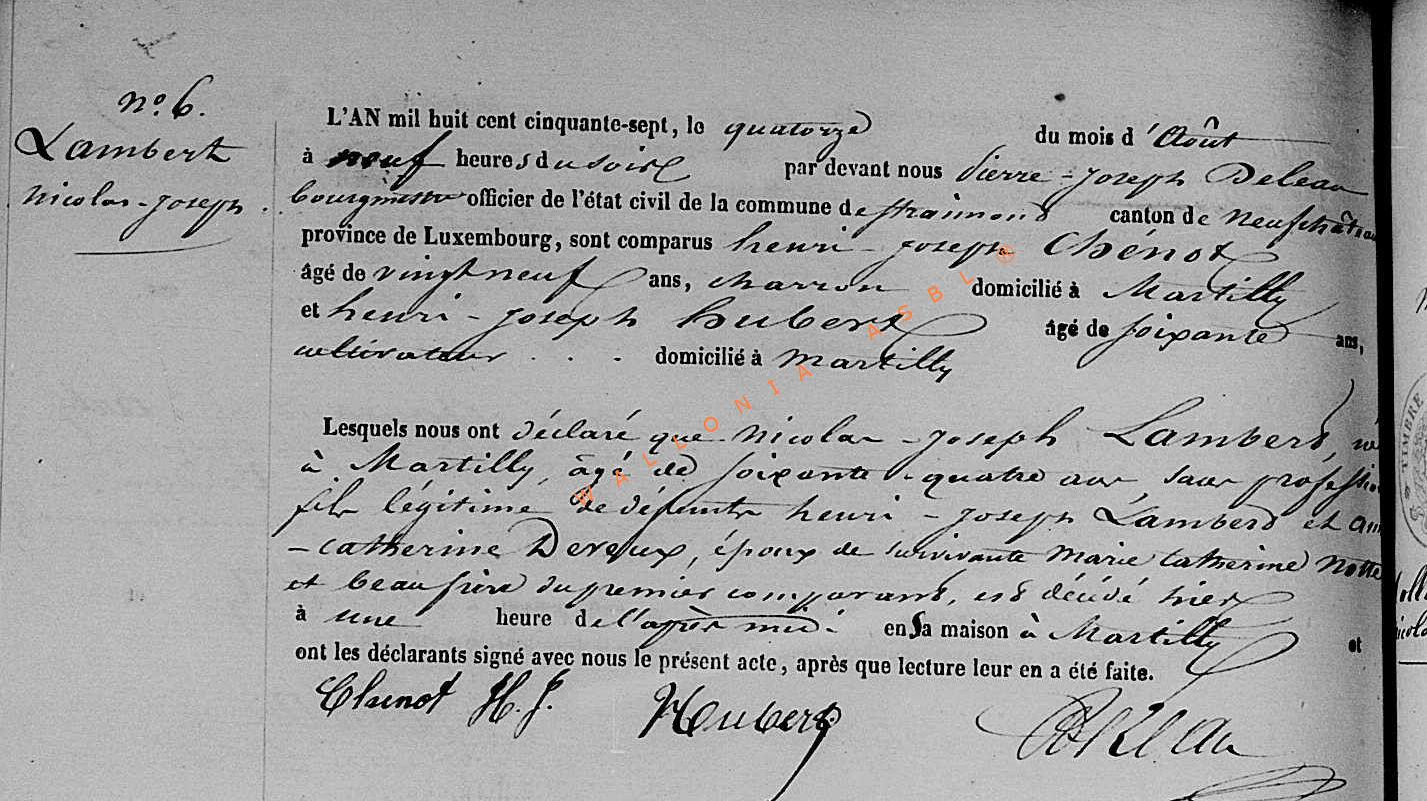 n° 6.
Lambert
nicolas-joseph.
L'AN mil huit cent cinquante-sept, le quatorze du mois d'Août
à neuf heures du soir par devant nous pierre-joseph Deleau
bourgmestre officier de l'état civil de la commune de straimont canton de neufchâteau
province de Luxembourg, sont comparus henri-joseph Chénot
âgé de vingt neuf ans, charron domicilié à Martilly
et henri-joseph hubert âgé de soixante ans,
cultivateur . . . domicilié à martilly
Lesquels nous ont déclaré que nicolas-joseph Lambert, né
à Martilly, âgé de soixante-quatre ans, sans profession
fils légitime de défunts henri-joseph Lambert et
-catherine Devaux, époux de survivante marie catherine
et beau frère du premier comparant, est décédé hier
à une heure de l'après midi en sa maison à Martilly et
ont les déclarants signé avec nous le présent acte, après que lecture leur en a été faite.
Chenot H. J. Houbert Deleau
WALLONIA ASBL ©
TIMBRE